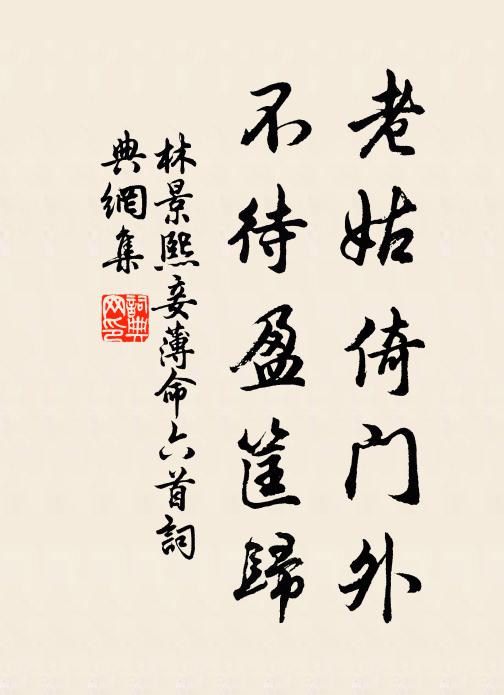 老姑倚门外
不待盈筐歸
林景熙妾薄命六首詞
典網集
詞典网印